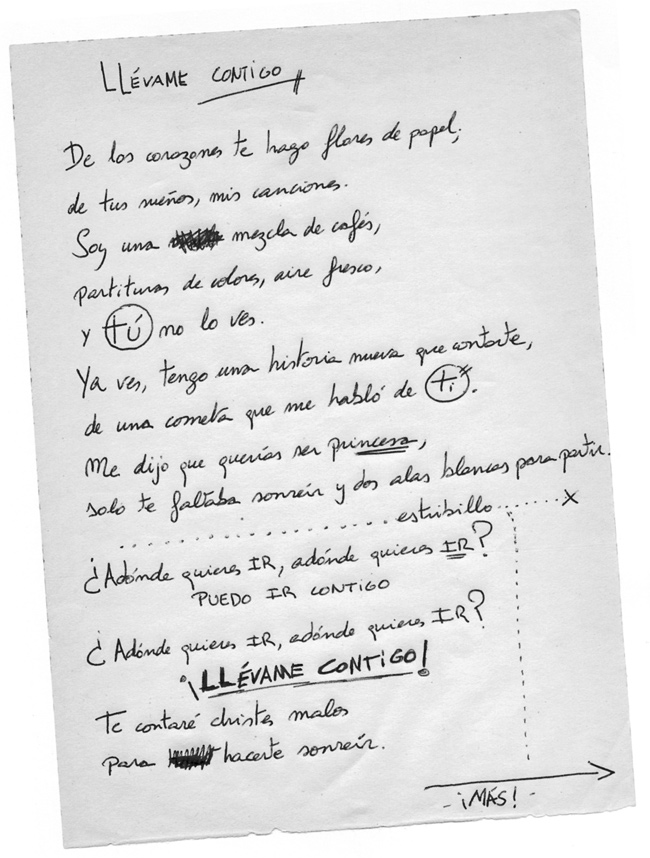 LLÉVAME CONTIGO
De los corazones te hago flores de papel;
de tus sueños, mis canciones.
Soy una mezcla de cafés,
partituras de colores, aire fresco,
y TÚ no lo ves.
Ya ves, tengo una historia nueva que contarte,
de una cometa que me habló de ti.
Me dijo que querías ser princesa,
solo te faltaba sonreír y dos alas blancas para partir.
estribillo x
¿Adónde quieres IR, adónde quieres IR?
PUEDO IR CONTIGO
¿Adónde quieres IR, adónde quieres IR?
¡LLÉVAME CONTIGO!
Te contaré chistes malos
para hacerte sonreír.
-¡MÁS!-